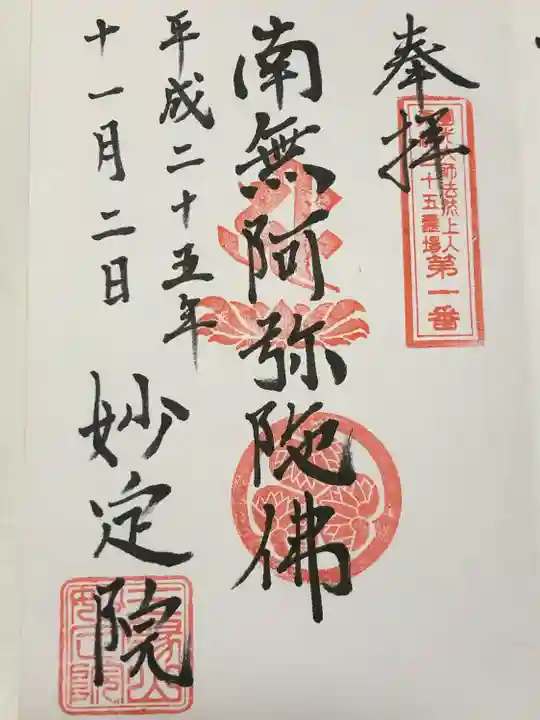 奉拝
大師法然上人
十五霊場第一番
南無阿弥陀佛
平成二十五年
十一月二日
妙定院